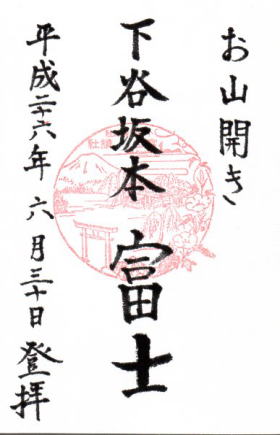 お山開き
下谷坂本富士
平成二十六年六月三十日登拝